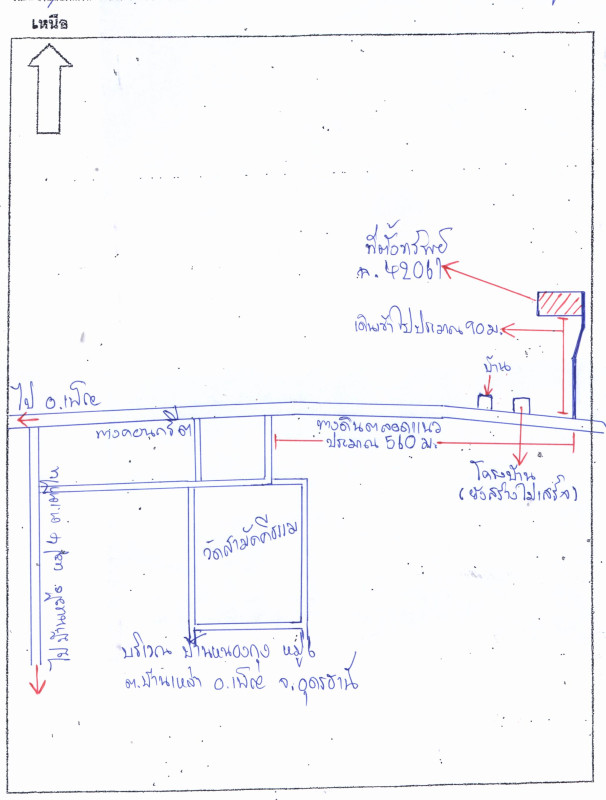 เหนือ
ที่ตั้งทรัพย์
ฉ. 42067
เดินเข้าไปประมาณ 90 ม.
บ้าน
ไป อ.เพ็ญ
ทางคอนกรีต
ทางดินตลอดแนว
ประมาณ 560 ม.
โครงบ้าน
(ยังสร้างไม่เสร็จ)
วัดสามัคคีธรรม
ไปบ้าน หมู่ 4
บริเวณ บ้านหนองกุง หมู่ 6
ต.บ้านเหล่า อ.เพ็ญ จ.อุดรธานี